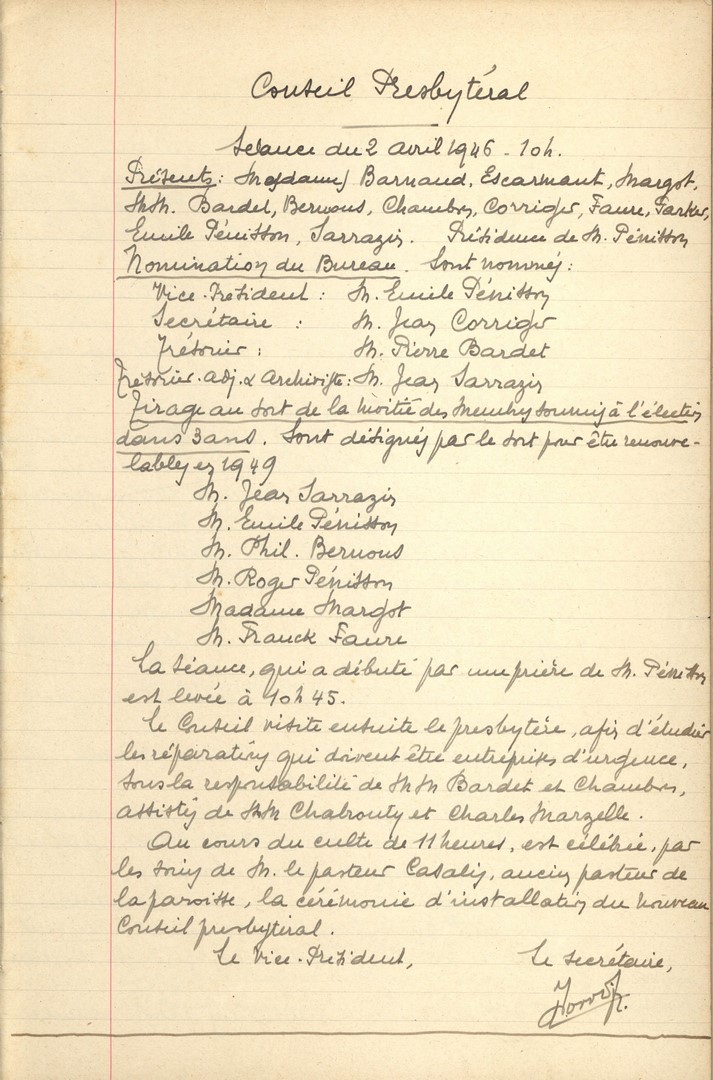 Conseil Presbytéral
Séance du 2 avril 1946 - 10h.
Présents: Mesdames Barnaud, Escarmant, Margot,
MM. Bardet, Bernous, Chambon, Corriger, Faure, Parker,
Emile Pénisson, Sarrazin. Présidence de M. Pénisson
Nomination du Bureau. Sont nommés:
Vice-Président : M. Emile Pénisson
Secrétaire : M. Jean Corriger
Trésorier : M. Pierre Bardet
Trésorier-adj. & Archiviste: M. Jean Sarrazin
Tirage au sort de la moitié des membres soumis à l'élection
dans 3 ans. Sont désignés par le sort pour être renouve-
lables en 1949
M. Jean Sarrazin
M. Emile Pénisson
M. Phil. Bernous
M. Roger Pénisson
Madame Margot
M. Franck Faure
La séance, qui a débuté par une prière de M. Pénisson
est levée à 10h45.
Le Conseil visite ensuite le presbytère, afin d'étudier
les réparations qui doivent être entreprises d'urgence,
sous la responsabilité de MM Bardet et Chambon,
assistés de MM Chabrouty et Charles Marzelle.
Au cours du culte de 11 heures, est célébrée, par
les soins de M. le pasteur Casalis, ancien pasteur de
la paroisse, la cérémonie d'installation du nouveau
Conseil presbytéral.
Le Vice-Président, Le secrétaire,